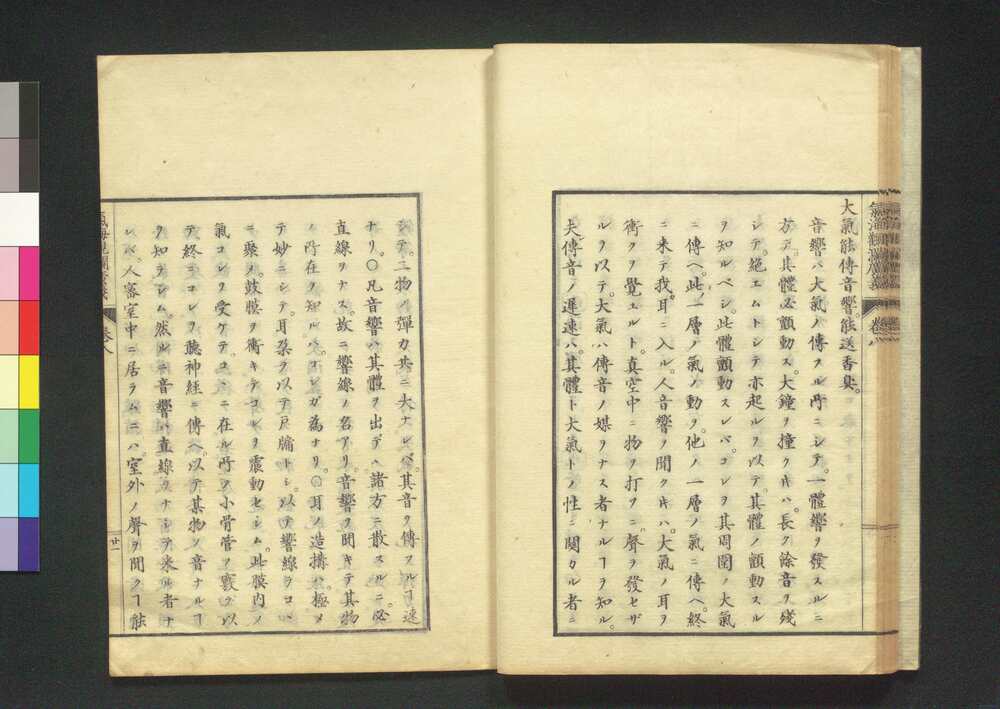 氣海觀瀾廣義 卷八
大氣能傳音響。能送香臭。
音響ハ大氣ノ傳フル所ニシテ。一體響ヲ發スルニ
方テ。其體必顫動ス。大鐘ヲ撞クキハ。長ク餘音ヲ殘
シテ。絕エムトシテ亦起ルヲ以テ。其體ノ顫動スル
ヲ知ルベシ。此體顫動スレバ。コレヲ其周圍ノ大氣
ニ傳ヘ。此一層ノ氣ノ動ク。他ノ一層ノ氣ニ傳ヘ。終
ニ来テ我耳ニ入ル。人音響ノ聞クキハ。大氣ノ耳ヲ
衝クヲ覺ユルト。真空中ニ物ヲ打ツニ。聲ヲ發セザ
ルヲ以テ。大氣ハ傳音ノ媒ヲナス者ナルヿヲ知ル。
夫傳音ノ遲速ハ。其體ト大氣トノ性ニ関カル者ニ
シテ。二物ノ彈力共ニ大ナレバ。其音ヲ傳フルヿ速
ナリ。〇凡音響ハ其體ヲ出デヽ諸方ニ散スルニ。必
直線ヲナス。故ニ響線ノ名アリ。音響ヲ聞キテ其物
ノ所在ヲ知ルハ。コレガ為ナリ。〇耳ノ造搆ハ。極メ
テ妙ニシテ。耳朶ヲ以テ戸牖トシ。以テ響線ヲコヽ
ニ聚メ。鼓膜ヲ衝キテコレヲ震動セシム。此膜内ノ
氣コレヲ受ケテ。コヽニ在ル所ノ小骨管ノ竅ヲ以
テ。終ニコレヲ聽神經ニ傳ヘ。以テ其物ノ音ナルヿ
ヲ知ラシム。然ルニ音響ハ直線ヲナシテ来ル者ナ
レバ。人審室中ニ居ラムニハ。室外ノ聲ヲ聞クヿ能
卷八
廿一